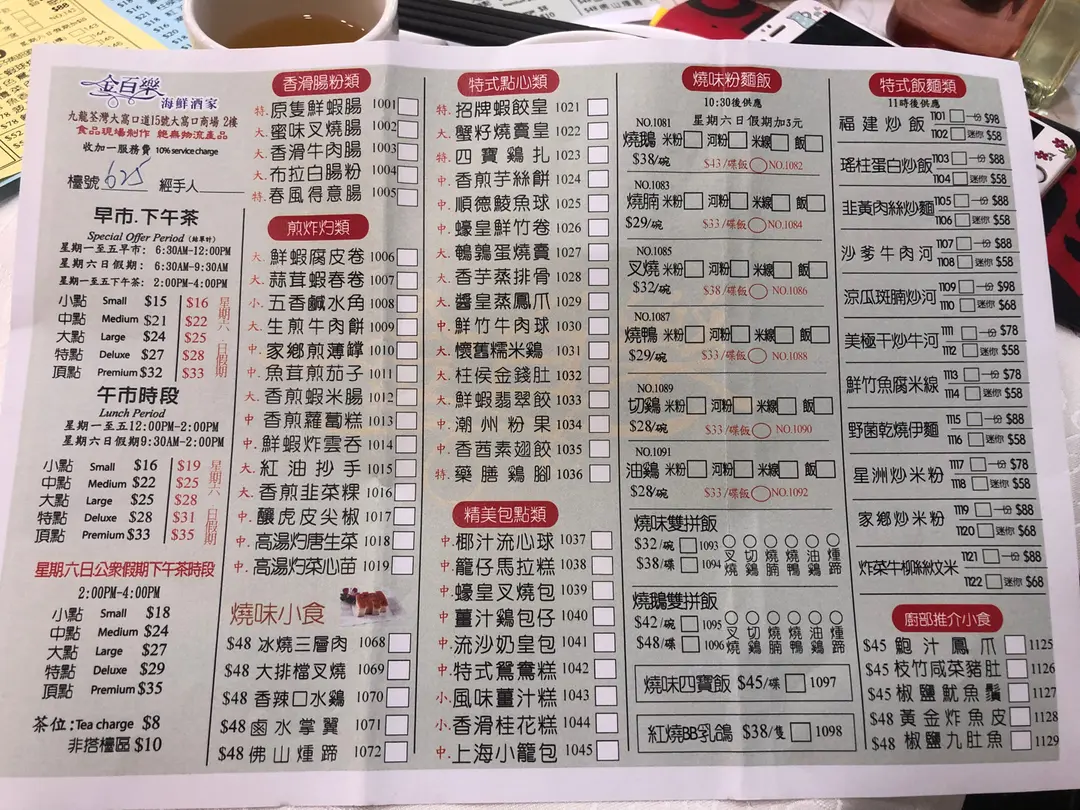 金百樂
海鮮酒家
九龍荃灣大窩口道15號大窩口商場 2樓
食品現場制作 絶無物流產品
收加一服務費 10% service charge
檯號 625 經手人
早市.下午茶
Special Offer Period (結單計)
星期一至五早市: 6:30AM-12:00PM
星期六日假期: 6:30AM-9:30AM
星期一至五下午茶: 2:00PM-4:00PM
小點 Small $15 $16
中點 Medium $21 $22
大點 Large $24 $25
特點 Deluxe $27 $28
頂點 Premium $32 $33
星期六 日假期
午市時段
Lunch Period
星期一至五12:00PM-2:00PM
星期六日假期9:30AM-2:00PM
小點 Small $16 $19
中點 Medium $22 $25
大點 Large $25 $28
特點 Deluxe $28 $31
頂點 Premium $33 $35
星期六 日假期
星期六日公衆假期下午茶時段
2:00PM-4:00PM
小點 Small $18
中點 Medium $24
大點 Large $27
特點 Deluxe $29
頂點 Premium $35
茶位:Tea charge $8
非搭檯區 $10
香滑腸粉類
特. 原隻鮮蝦腸 1001
大. 蜜味叉燒腸 1002
大. 香滑牛肉腸 1003
大. 布拉白腸粉 1004
特. 春風得意腸 1005
煎炸灼類
大. 鮮蝦腐皮卷 1006
大. 蒜茸蝦春卷 1007
小. 五香鹹水角 1008
大. 生煎牛肉餅 1009
中. 家鄉煎薄罉 1010
中. 魚茸煎茄子 1011
大. 香煎蝦米腸 1012
中. 香煎蘿蔔糕 1013
中. 鮮蝦炸雲吞 1014
大. 紅油抄手 1015
大. 香煎韭菜粿 1016
中. 釀虎皮尖椒 1017
中. 高湯灼唐生菜 1018
中. 高湯灼菜心苗 1019
燒味小食
$48 冰燒三層肉 1068
$48 大排檔叉燒 1069
$48 香辣口水鷄 1070
$48 鹵水掌翼 1071
$48 佛山燻蹄 1072
特式點心類
特. 招牌蝦餃皇 1021
大. 蟹籽燒賣皇 1022
特. 四寶鷄扎 1023
中. 香煎芋絲餅 1024
中. 順德鯪魚球 1025
中. 蠔皇鮮竹卷 1026
大. 鵪鶉蛋燒賣 1027
大. 香芋蒸排骨 1028
大. 醬皇蒸鳳爪 1029
中. 鮮竹牛肉球 1030
大. 懷舊糯米鷄 1031
大. 柱侯金錢肚 1032
大. 鮮蝦翡翠餃 1033
中. 潮州粉果 1034
中. 香茜素翅餃 1035
特. 藥膳鷄腳 1036
精美包點類
中. 椰汁流心球 1037
中. 籠仔馬拉糕 1038
中. 蠔皇叉燒包 1039
中 薑汁鷄包仔 1040
中. 流沙奶皇包 1041
中. 特式鴛鴦糕 1042
小. 風味薑汁糕 1043
小. 香滑桂花糕 1044
中. 上海小籠包 1045
燒味粉麵飯
10:30後供應
星期六日假期加3元
NO.1081
燒鵝 米粉 河粉 米線 飯
$38/碗 $43/碟飯 NO.1082
NO.1083
燒腩 米粉 河粉 米線 飯
$29/碗 $33/碟飯 NO.1084
NO.1085
叉燒 米粉 河粉 米線 飯
$32/碗 $38/碟飯 NO.1086
NO.1087
燒鴨 米粉 河粉 米線 飯
$29/碗 $33/碟飯 NO.1088
NO.1089
切鷄 米粉 河粉 米線 飯
$28/碗 $33/碟飯 NO.1090
NO.1091
油鷄 米粉 河粉 米線 飯
$28/碗 $33/碟飯 NO.1092
燒味雙拼飯
$32/碗 1093
$38/碟 1094
叉燒 切鷄 燒腩 燒鴨 油鷄 燻蹄
燒鵝雙拼飯
$42/碗 1095
$48/碟 1096
叉燒 切鷄 燒腩 燒鴨 油鷄 燻蹄
燒味四寶飯 $45/碟 1097
紅燒BB乳鴿 $38/隻 1098
特式飯麵類
11時後供應
福建炒飯 1101 一份 $98
1102 迷你 $58
瑤柱蛋白炒飯 1103 一份 $88
1104 迷你 $58
韭黃肉絲炒麵 1105 一份 $88
1106 迷你 $58
沙爹牛肉河 1107 一份 $88
1108 迷你 $58
涼瓜斑腩炒河 1109 一份 $98
1110 迷你 $68
美極干炒牛河 1111 一份 $78
1112 迷你 $58
鮮竹魚腐米線 1113 一份 $78
1114 迷你 $58
野菌乾燒伊麵 1115 一份 $88
1116 迷你 $58
星洲炒米粉 1117 一份 $78
1118 迷你 $58
家鄉炒米粉 1119 一份 $88
1120 迷你 $68
炸菜牛柳絲炆米 1121 一份 $88
1122 迷你 $68
廚部推介小食
$45 鮑汁鳳爪 1125
$45 枝竹咸菜豬肚 1126
$45 椒鹽魷魚鬚 1127
$48 黃金炸魚皮 1128
$48 椒鹽九肚魚 1129